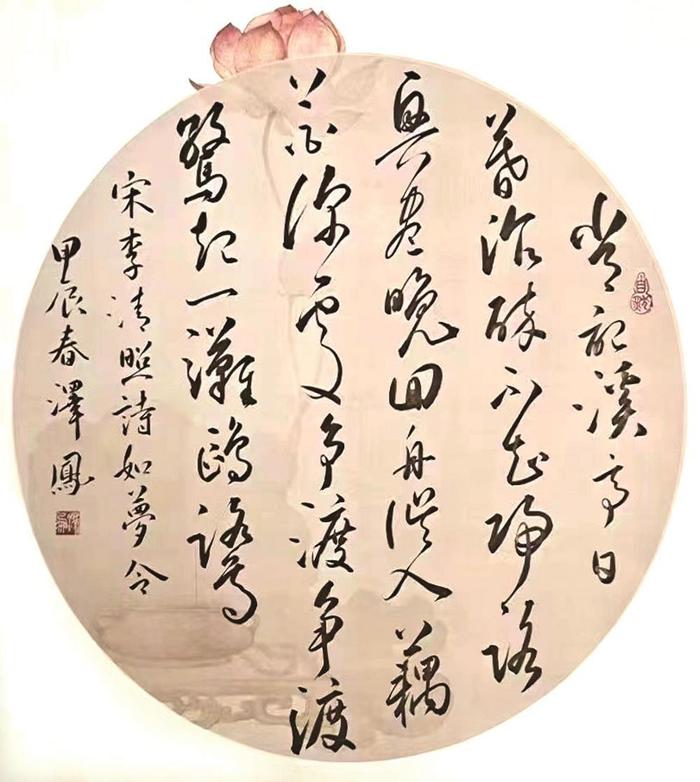 常記溪亭日
暮沈醉不知歸路
興盡晚回舟誤入藕
花深處爭渡爭渡
驚起一灘鷗鷺
宋李清照詩如夢令
甲辰春澤鳳